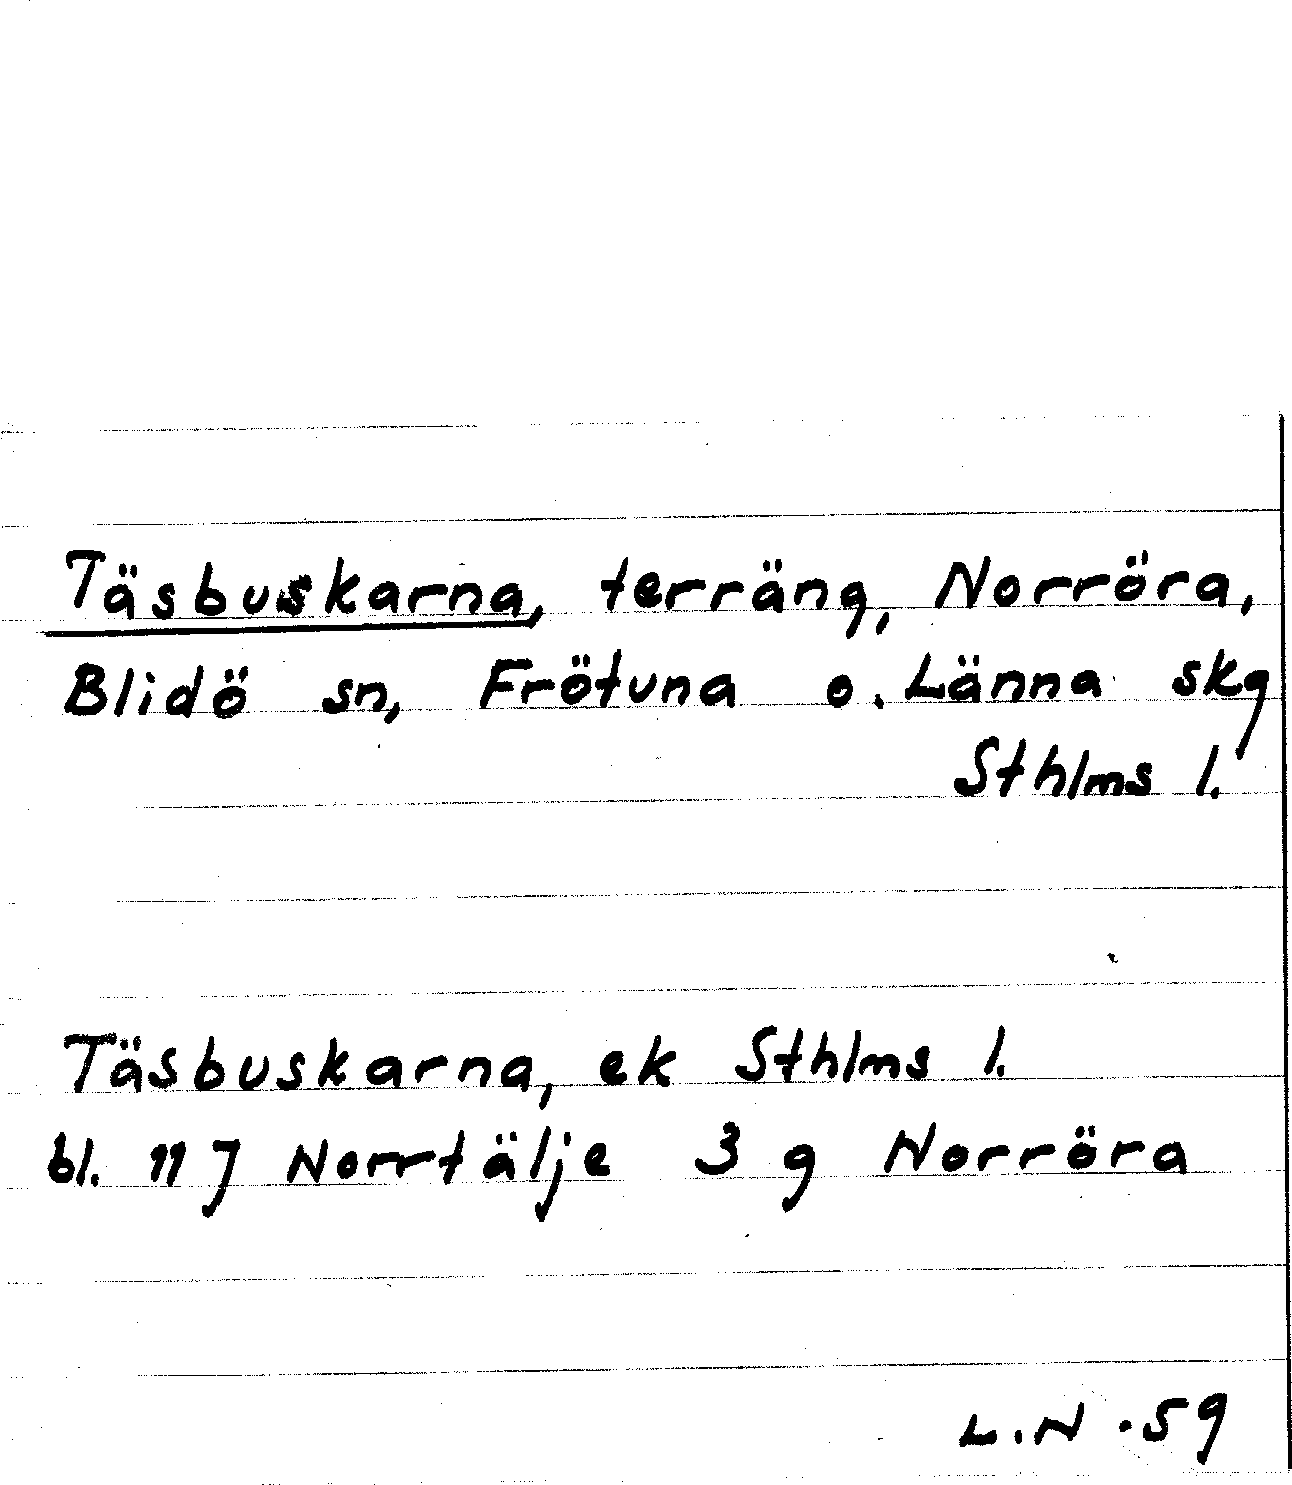 Täsbuskarna, terräng, Norröra,
Blidö sn, Frötuna o. Länna skg
Sthlms l.
Täsbuskarna, ek Sthlms l.
bl. 11 J Norrtälje 3 g Norröra
L.N .59